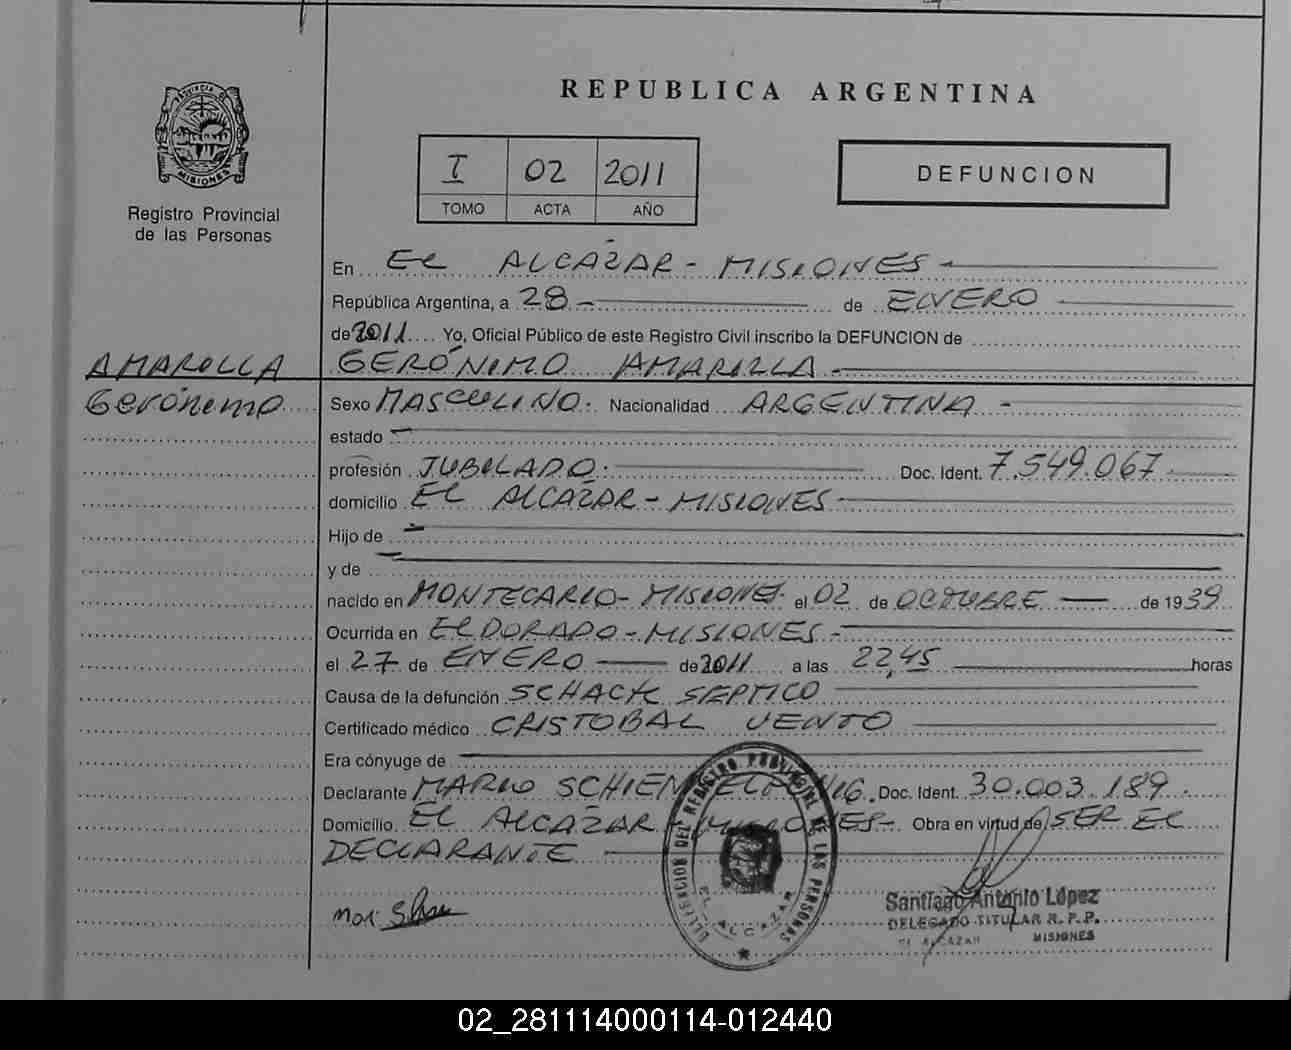 REPUBLICA ARGENTINA
PROVINCIA DE MISIONES
Registro Provincial
de las Personas
I 02 2011
TOMO ACTA AÑO
DEFUNCION
En EL ALCAZAR - MISIONES -
República Argentina, a 28 - de ENERO
de 2011 Yo, Oficial Público de este Registro Civil inscribo la DEFUNCION de
AMARILLA
GERÓNIMO AMARILLA -
Gerónimo
Sexo MASCULINO. Nacionalidad ARGENTINA -
estado -
profesión JUBILADO: Doc. Ident. 7.549.067
domicilio EL ALCAZAR - MISIONES -
Hijo de -
y de -
nacido en MONTECARLO - MISIONES el 02 de OCTUBRE — de 1939
Ocurrida en ELDORADO - MISIONES -
el 27 de ENERO — de 2011 a las 22,45 horas
Causa de la defunción SCHACK SEPTICO
Certificado médico CRISTOBAL VENTO
Era cónyuge de
Declarante MARIO Doc. Ident. 30.003.189.
Domicilio EL ALCAZAR MISIONES - Obra en virtud de SER EL
DECLARANTE
DELEGACION DEL REGISTRO PROVINCIAL DE LAS PERSONAS
EL ALCAZAR
Santiago Antonio López
DELEGADO TITULAR R. P. P.
EL ALCAZAR MISIONES
02_281114000114-012440